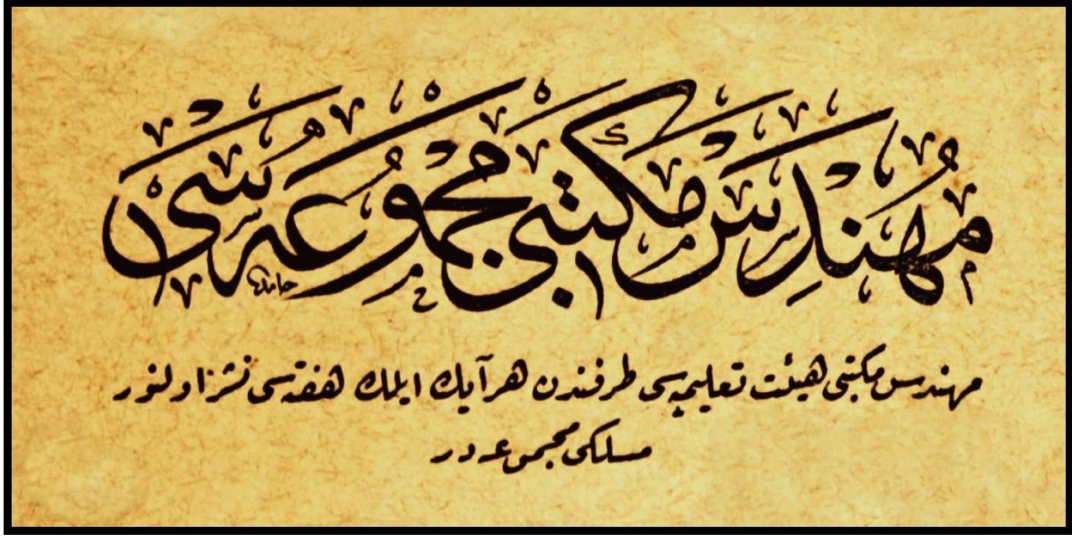 مهندس مكتبی مجموعه سی
حامد
مهندس مكتبی هیئت تعلیمیه‌سی طرفندن هر آیك ایلك هفته‌سی نشر اولنور
مسلكی مجموعه در